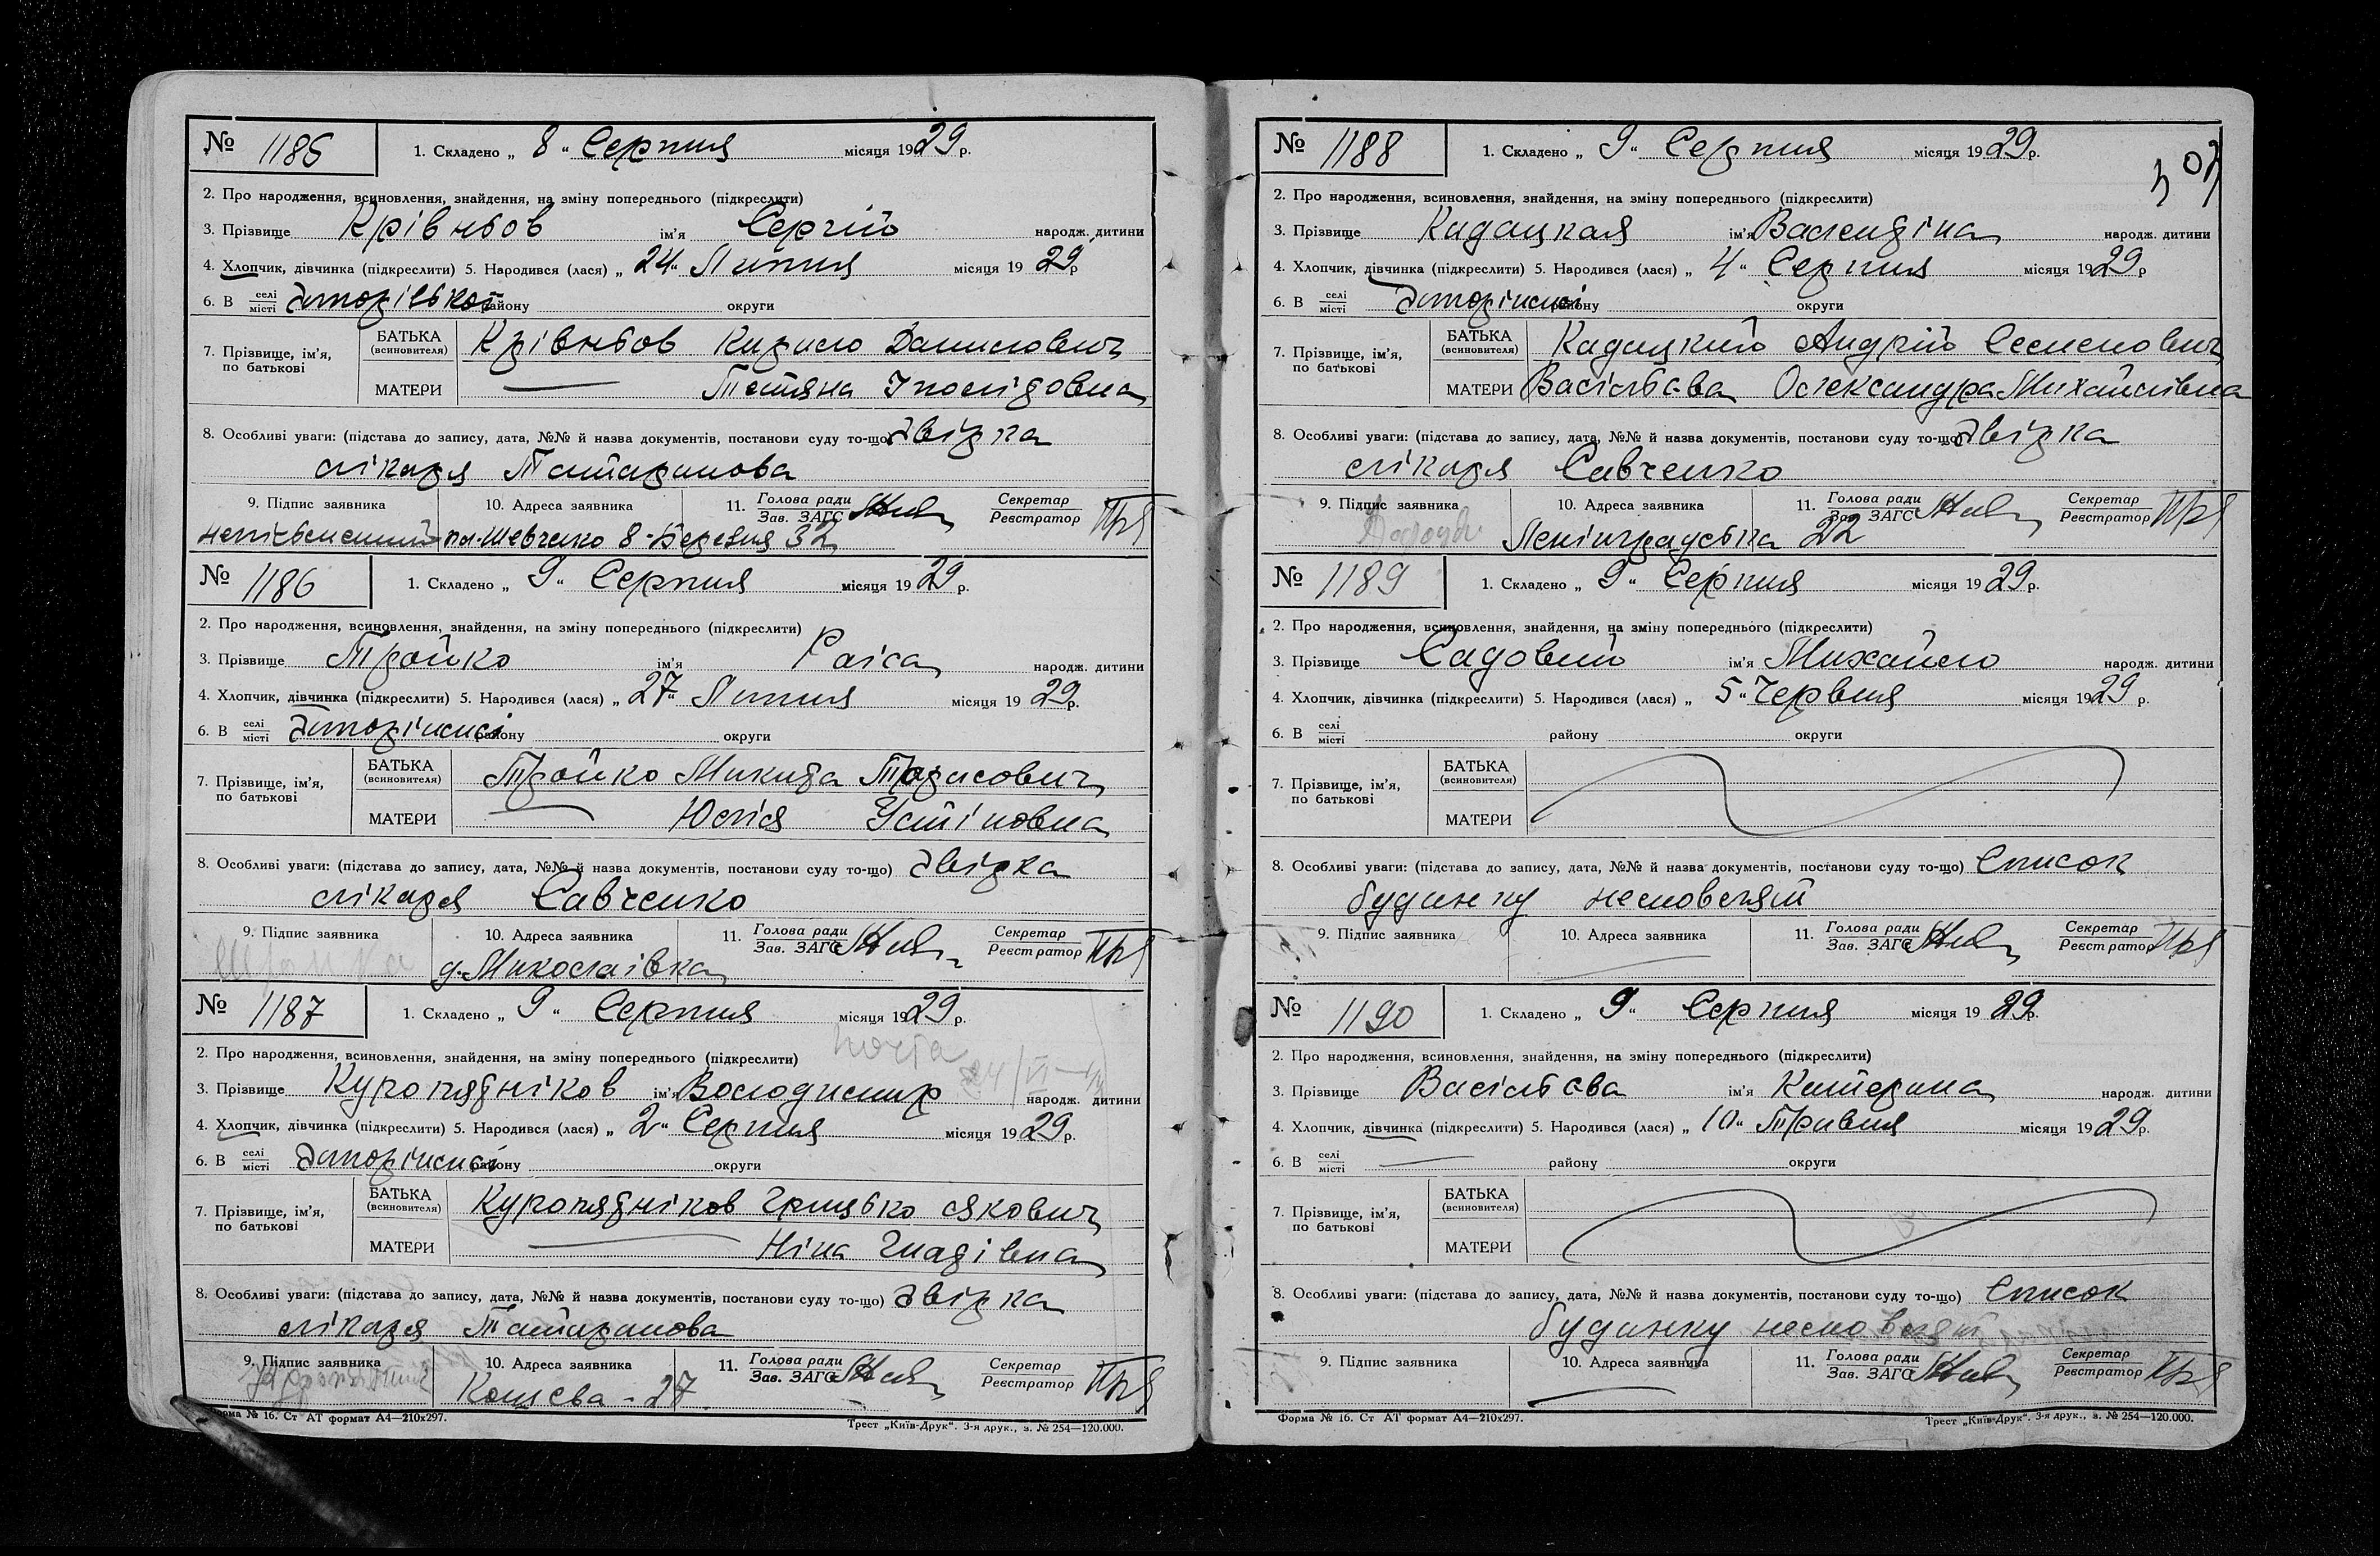 № 1185
1. Складено „ 8 “ Серпня місяця 1929 р.
2. Про народження, всиновлення, знайдення, на зміну попереднього (підкреслити)
3. Прізвище Крівньов ім'я Сергій народж. дитини
4. Хлопчик, дівчинка (підкреслити) 5. Народився (лася) „ 24 “ Липня місяця 1929 р
6. В селі місті району округи
7. Прізвище, ім'я, по батькові
БАТЬКА (всиновителя) Крівньов Кирило Данилович
МАТЕРИ — Тетяна
8. Особливі уваги: (підстава до запису, дата, №№ й назва документів, постанови суду то-що) Звірка
лікаря Татаринова
9. Підпис заявника 10. Адреса заявника 11. Голова ради Зав. ЗАГС Секретар Реєстратор
пл. Шевченко 8-Березня 32
№ 1186
1. Складено „ 9 “ Серпня місяця 1929 р.
2. Про народження, всиновлення, знайдення, на зміну попереднього (підкреслити)
3. Прізвище Тройко ім'я Раіса народж. дитини
4. Хлопчик, дівчинка (підкреслити) 5. Народився (лася) „ 27 “ Липня місяця 1929 р.
6. В селі місті Запоріжжі району округи
7. Прізвище, ім'я, по батькові
БАТЬКА (всиновителя) Тройко Микита Тарасович
МАТЕРИ — Юлія Устіновна
8. Особливі уваги: (підстава до запису, дата, №№ й назва документів, постанови суду то-що) Звірка
лікаря Савченко
9. Підпис заявника 10. Адреса заявника 11. Голова ради Зав. ЗАГС Секретар Реєстратор
д. Миколаівка
№ 1187
1. Складено „ 9 “ Серпня місяця 1929 р.
2. Про народження, всиновлення, знайдення, на зміну попереднього (підкреслити)
3. Прізвище Куропядніков ім'я Володимир народж. дитини
4. Хлопчик, дівчинка (підкреслити) 5. Народився (лася) „ 2 “ Серпня місяця 1929 р.
6. В селі місті Запоріжжі району округи
7. Прізвище, ім'я, по батькові
БАТЬКА (всиновителя) Куропядніков Грицько Якович
МАТЕРИ — Ніна
8. Особливі уваги: (підстава до запису, дата, №№ й назва документів, постанови суду то-що) Звірка
лікаря Татаринова
9. Підпис заявника 10. Адреса заявника 11. Голова ради Зав. ЗАГС Секретар Реєстратор
27
Форма № 16. Ст АТ формат А4—210х297. Трест „Київ-Друк“. 3-я друк., з. № 254—120.000.
№ 1188
1. Складено „ 9 “ Серпня місяця 1929 р.
2. Про народження, всиновлення, знайдення, на зміну попереднього (підкреслити)
3. Прізвище Кадацкая ім'я Валендіна народж. дитини
4. Хлопчик, дівчинка (підкреслити) 5. Народився (лася) „ 4 “ Серпня місяця 1929 р
6. В селі місті Запоріжжі району округи
7. Прізвище, ім'я, по батькові
БАТЬКА (всиновителя) Кадацкий Андрій Семенович
МАТЕРИ Васільєва Олександра Михайлівна
8. Особливі уваги: (підстава до запису, дата, №№ й назва документів, постанови суду то-що) Звірка
лікаря Савченко
9. Підпис заявника 10. Адреса заявника 11. Голова ради Зав. ЗАГС Секретар Реєстратор
Ленінградська 22
№ 1189
1. Складено „ 9 “ Серпня місяця 1929 р.
2. Про народження, всиновлення, знайдення, на зміну попереднього (підкреслити)
3. Прізвище Садовий ім'я Михайло народж. дитини
4. Хлопчик, дівчинка (підкреслити) 5. Народився (лася) „ 5 “ Червня місяця 1929 р.
6. В селі місті району округи
7. Прізвище, ім'я, по батькові
БАТЬКА (всиновителя)
МАТЕРИ
8. Особливі уваги: (підстава до запису, дата, №№ й назва документів, постанови суду то-що) Список
будинку немовлят
9. Підпис заявника 10. Адреса заявника 11. Голова ради Зав. ЗАГС Секретар Реєстратор
№ 1190
1. Складено „ 9 “ Серпня місяця 1929 р.
2. Про народження, всиновлення, знайдення, на зміну попереднього (підкреслити)
3. Прізвище Васільєва ім'я Катерина народж. дитини
4. Хлопчик, дівчинка (підкреслити) 5. Народився (лася) „ 10 “ Травня місяця 1929 р.
6. В селі місті — району округи
7. Прізвище, ім'я, по батькові
БАТЬКА (всиновителя)
МАТЕРИ
8. Особливі уваги: (підстава до запису, дата, №№ й назва документів, постанови суду то-що) Список
будинку немовлят
9. Підпис заявника 10. Адреса заявника 11. Голова ради Зав. ЗАГС Секретар Реєстратор
Форма № 16. Ст АТ формат А4—210х297. Трест „Київ-Друк“. 3-я друк., з. № 254—120.000.